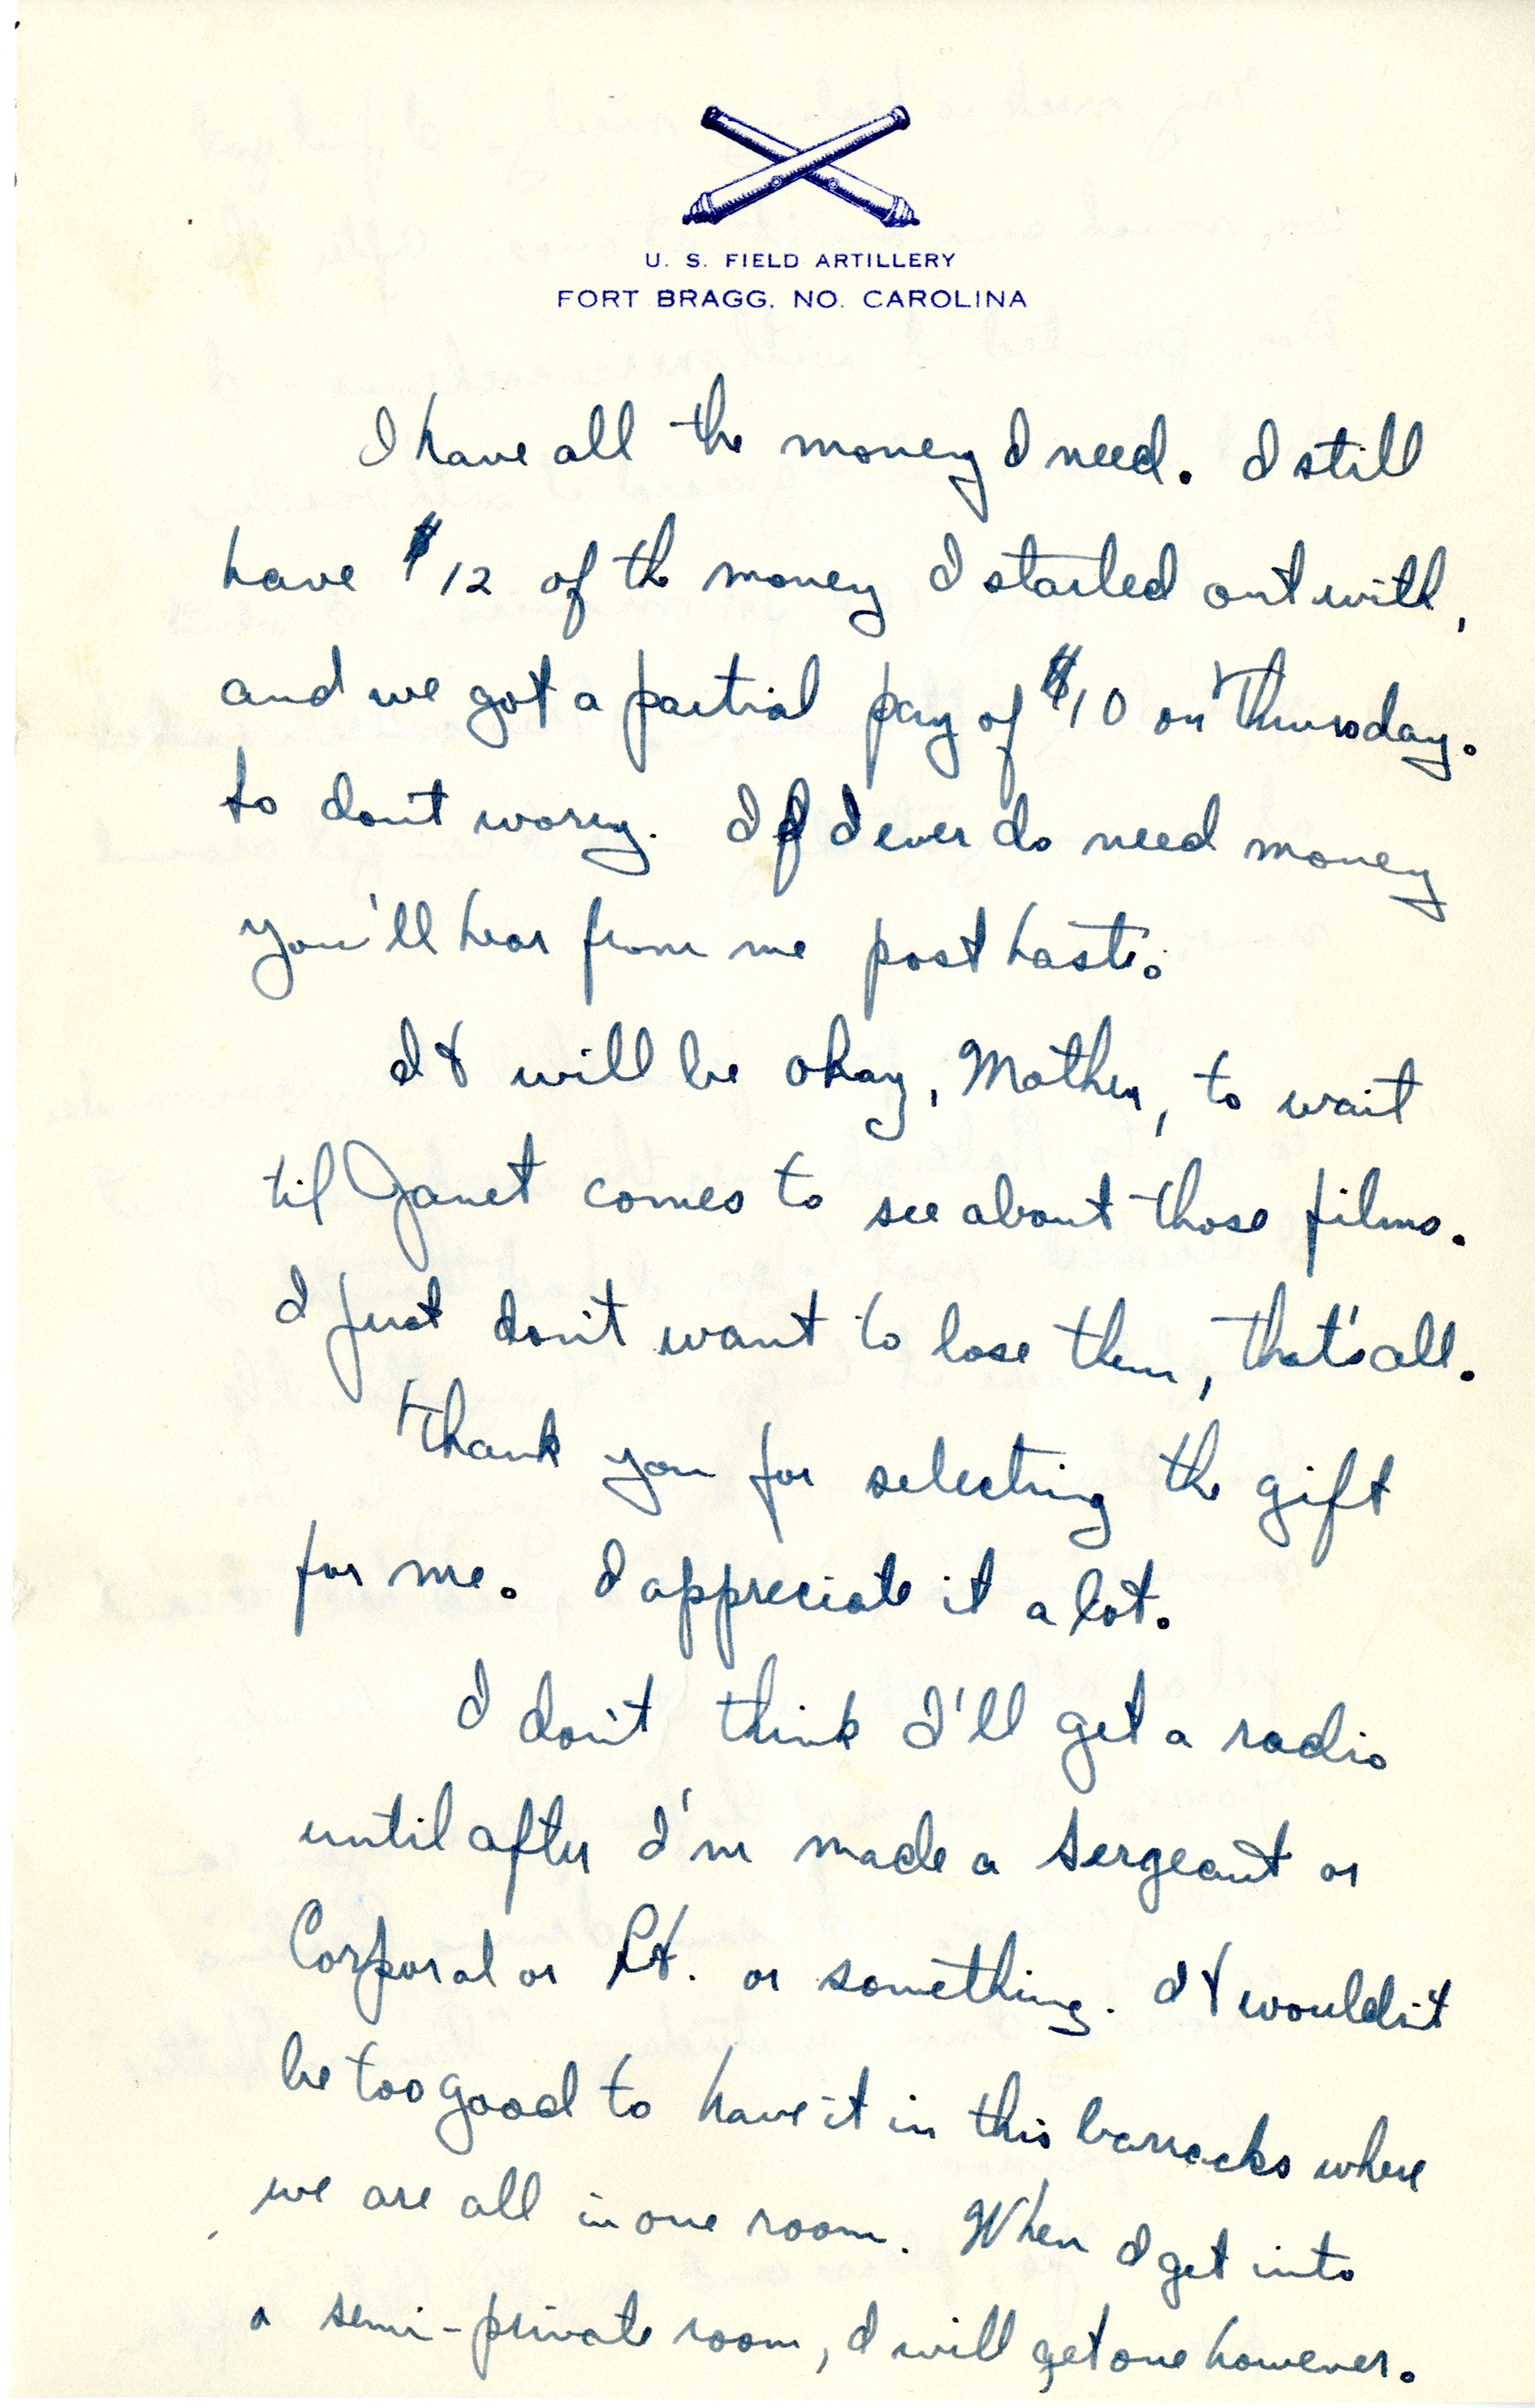 U. S. FIELD ARTILLERY
FORT BRAGG, NO. CAROLINA
I have all the money I need. I still
have $12 of the money I started out with,
and we got a partial pay of $10 on Thursday.
So don't worry. If I ever do need money
you'll hear from me post haste.
It will be okay, Mother, to wait
til Janet comes to see about those films.
I just don't want to lose them, that's all.
Thank you for selecting the gift
for me. I appreciate it a lot.
I don't think I'll get a radio
until after I'm made a Sergeant or
Corporal or Lt. or something. It wouldn't
be too good to have it in this barracks where
we are all in one room. When I get into
a semi-private room, I will get one however.